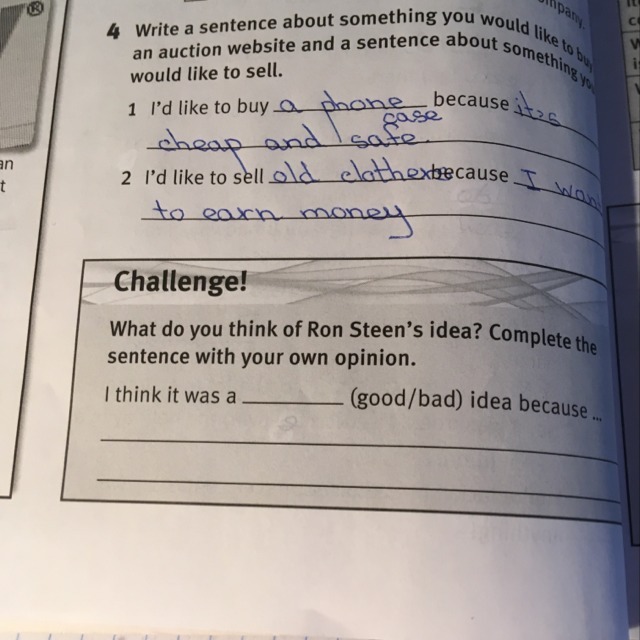 ®
mpany.
4 Write a sentence about something you would like to buy
an auction website and a sentence about something you
would like to sell.
1 I'd like to buy a phone case because it's
cheap and safe.
2 I'd like to sell old clothes because I wan
to earn money
an
t
Challenge!
What do you think of Ron Steen's idea? Complete the
sentence with your own opinion.
I think it was a ________ (good/bad) idea because ...